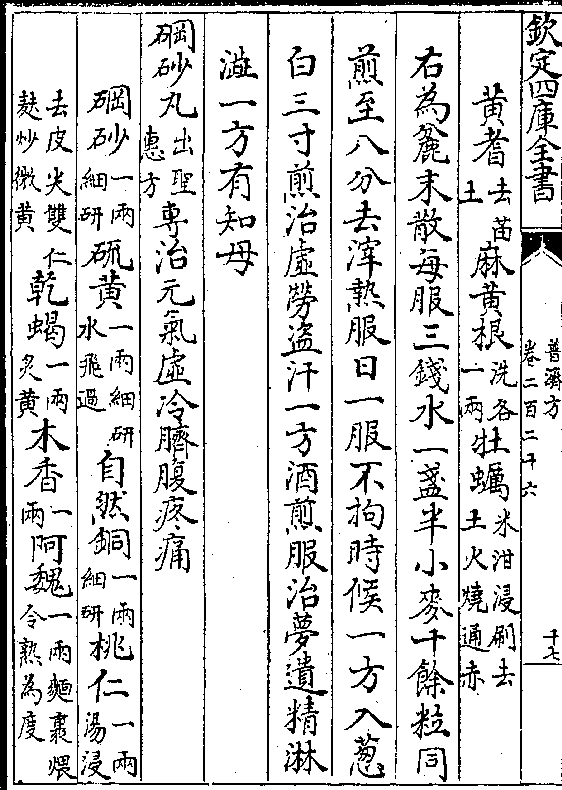 欽定四庫全書
普濟方
卷二百二十六
十七
黃耆去苗土麻黃根洗各一兩牡蠣米泔浸刷去土火燒通赤
右為麄末散每服三錢水一盞半小麥十餘粒同
煎至八分去滓熱服日一服不拘時候一方入蔥
白三寸煎治虛勞盜汗一方酒煎服治夢遺精淋
澁一方有知母
碙砂丸出聖惠方專治元氣虛冷臍腹疼痛
碙砂一兩細研硫黃一兩細研水飛過自然銅一兩細研桃仁一兩湯浸
去皮尖雙仁麩炒微黃乾蝎一兩炙黃木香一兩阿魏一兩麵裹煨令熟為度